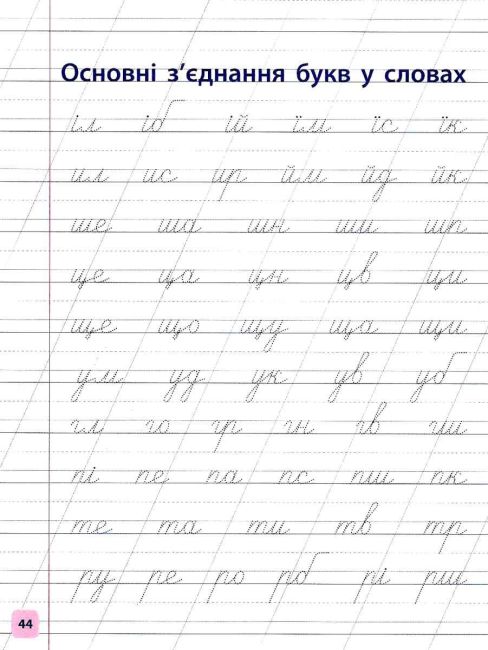 Основні з’єднання букв у словах
іл іб ій їм їс їк
ил ис ир йм йд йк
ше ша шн ши шр
це ца цн цв ци
ще що щу ща щи
ум уд ук ув уб
гл го гр гн гв гш
пі пе па пс пш пк
те та ти тв тр
ру ре ро рб рі рш
44